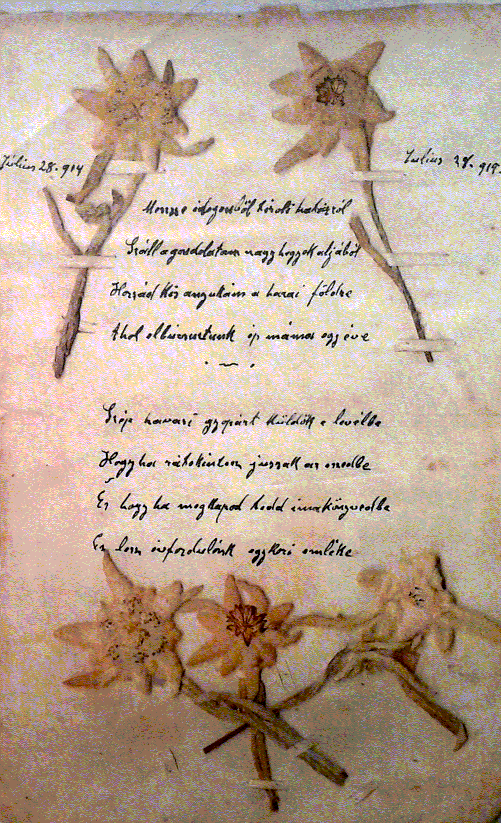 Július 28. 914
Július 28. 915
Messze idegenből távoli határról
Száll a gondolatom nagy hegyek aljából
Hozzád kis angyalom a hazai földre
Ahol elbúcsúztunk ép mámos egy éve
Szép havasi gyopárt küldök e levélbe
Hogy ha rátekintesz jussak az eszedbe
És hogy ha megkapod tedd imakönyvedbe
Ez lesz évfordulónk egykori emléke